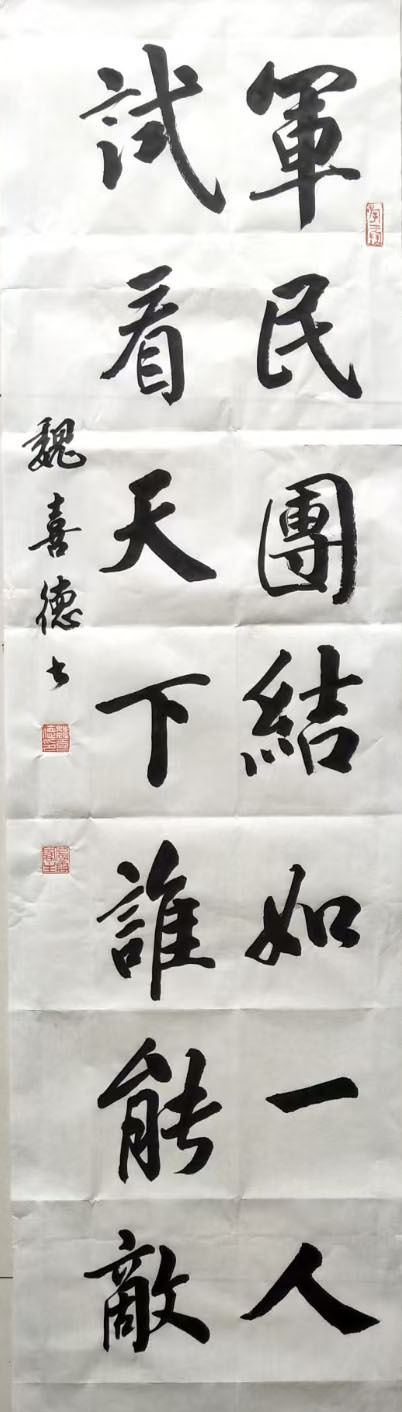 軍民團結如一人
試看天下誰能敵
魏喜德书